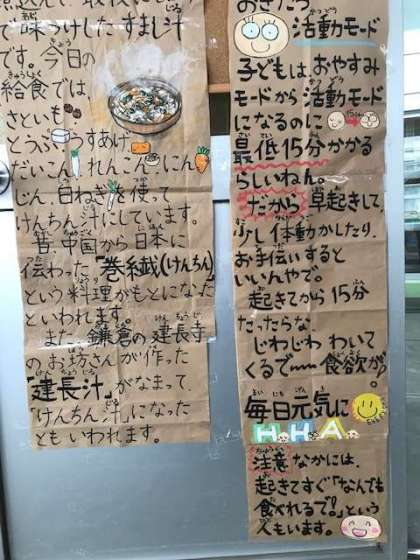 で味つけしたすまし汁
です。今日の
給食では、
さといも
とうふ、うすあげ
だいこん、れんこん、にん
じん、白ねぎを使って
けんちん汁にしています。
昔、中国から日本に
伝わった「巻繊(けんちん)」
という料理がもとになった
といわれます。
また、鎌倉の建長寺
のお坊さんが作った
「建長汁」がなまって、
「けんちん汁」になった
ともいわれます。
おきたら
活動モード
子どもは、おやすみ
モードから活動モード
になるのに
最低15分かかる
らしいねん。
だから早起きして、
少し体動かしたり、
お手伝いすると
いいんやで。
起きてから15分
たったらな、
じわじわわいて
くるで〜食欲が!
毎日元気に
H.H.A.
注意 なかには、
起きてすぐ「なんでも
食べれるで。」という
人もいます。